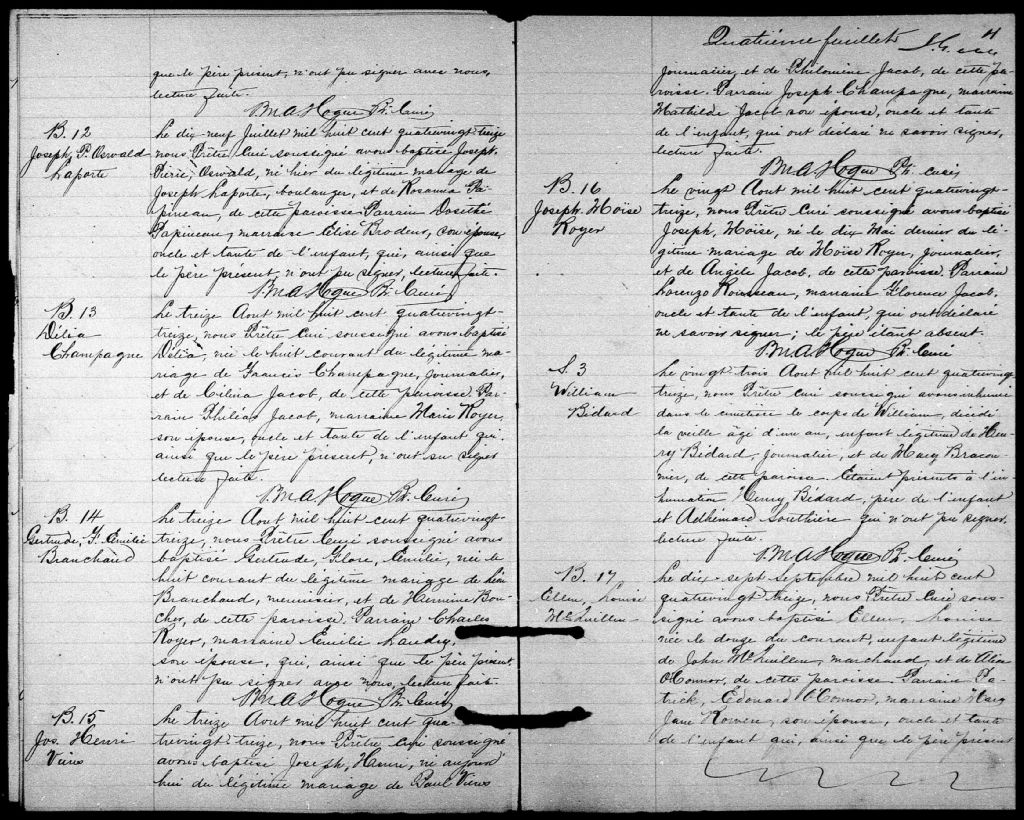 que le père présent, n'ont pu signer avec nous,
lecture faite.
B.M.A. Hogue Ptr. Curé
B. 12
Joseph P. Oswald
Laporte
Le dix-neuf Juillet mil huit cent quatrevingt treize
nous Prêtre Curé soussigné avons baptisé Joseph,
Oswald, né hier du légitime mariage de
Joseph Laporte, boulanger, et de Rosanna Pa-
pineau, de cette paroisse. Parrain
Papineau, marraine Elise Brodeur, son épouse,
oncle et tante de l'enfant, qui, ainsi que
le père présent, n'ont pu signer, lecture faite.
B.M.A. Hogue Ptr. Curé
B. 13
Délia
Champagne
Le treize Aout mil huit cent quatrevingt-
treize, nous Prêtre Curé soussigné avons baptisé
Délia, née le huit courant du légitime ma-
riage de Francis Champagne, Journalier,
et de Celina Jacob, de cette paroisse. Par-
rain Philias Jacob, marraine Marie Royer,
son épouse, oncle et tante de l'enfant qui,
ainsi que le père présent, n'ont su signer
lecture faite.
B.M.A. Hogue Ptr. Curé
B. 14
Gertrude, F. Emilie
Branchaud
Le treize Aout mil huit cent quatrevingt-
treize, nous Prêtre Curé soussigné avons
baptisé Gertrude, Flore, Emilie, née le
huit courant du légitime mariage de Léon
Branchaud, menuisier, et de Hermine Bou-
cher, de cette paroisse. Parrain Charles
Royer, marraine Emilie Landry
son épouse, qui, ainsi que le père présent,
n'ont pu signer avec nous, lecture faite.
B.M.A. Hogue Ptr. Curé
B. 15
Jos. Henri
Viens
Le treize Aout mil huit cent qua-
trevingt-treize, nous Prêtre Curé soussigné
avons baptisé Joseph, Henri, né aujourd'
hui du légitime mariage de Paul Viens
Quatrième feuillet 4
journalier, et de Philomène Jacob, de cette pa-
roisse. Parrain Joseph Champagne, marraine
Mathilde Jacob son épouse, oncle et tante
de l'enfant, qui ont déclaré ne savoir signer,
lecture faite.
B.M.A. Hogue Ptr. Curé
B. 16
Joseph Moïse
Royer
Le vingt Aout mil huit cent quatrevingt-
treize, nous Prêtre Curé soussigné avons baptisé
Joseph, Moïse, né le dix Mai dernier du lé-
gitime mariage de Moïse Royer, journalier,
et de Angèle Jacob, de cette paroisse. Parrain
Lorenzo Rousseau, marraine Florence Jacob,
oncle et tante de l'enfant, qui ont déclaré
ne savoir signer; le père étant absent.
B.M.A. Hogue Ptr. Curé
S. 3
William
Bédard
Le vingt trois Aout mil huit cent quatrevingt
treize, nous Prêtre Curé soussigné avons inhumé
dans le cimetière le corps de William, décédé
la veille âgé d'un an, enfant légitime de Hen-
ry Bédard, Journalier, et de Mary Bracon-
nier, de cette paroisse. Etaient présents à l'in-
humation Henry Bédard, père de l'enfant
et Adhémard Southière qui n'ont pu signer,
lecture faite.
B.M.A. Hogue Ptr. Curé
B. 17
Ellen, Louise
McQuillen
Le dix-sept Septembre mil huit cent
quatrevingt treize, nous Prêtre Curé sous-
signé avons baptisé Ellen, Louise
née le douze du courant, enfant légitime
de John McQuillen, marchand et de Alice
O'Connor, de cette paroisse. Parrain Pa-
trick, Edouard O'Connor, marraine Mary
Jane Rowen, son épouse, oncle et tante
de l'enfant qui, ainsi que le père présent